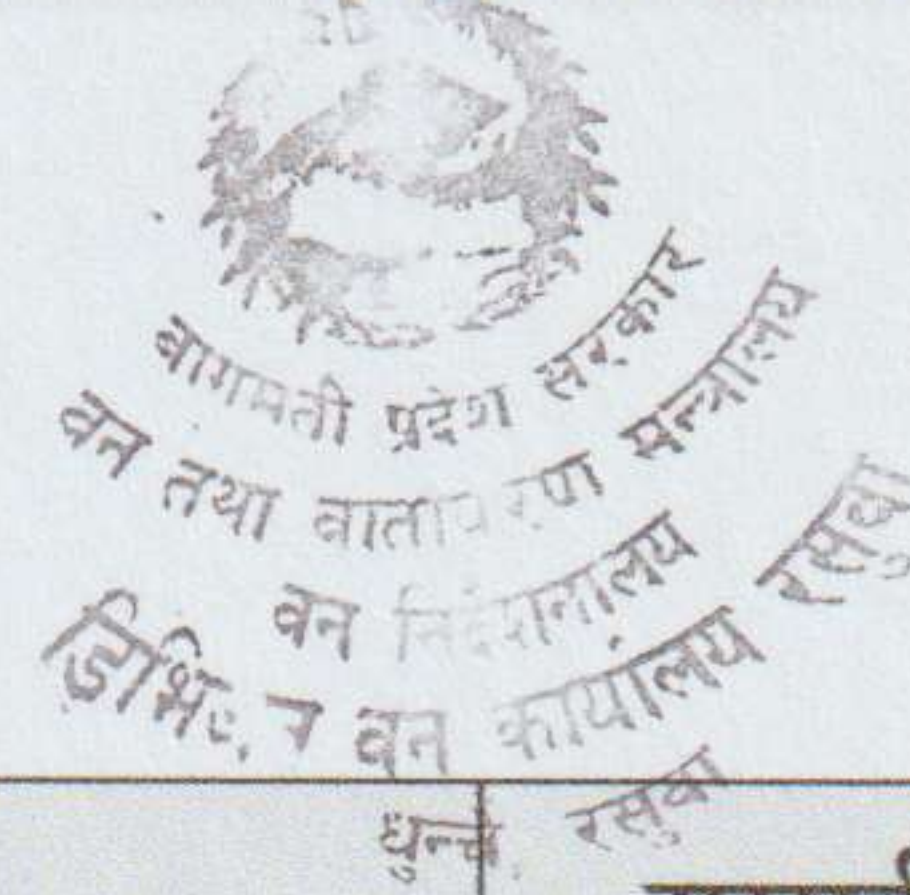 बागमती प्रदेश सरकार
वन तथा वातावरण मन्त्रालय
वन निर्देशनालय
डिभिजन वन कार्यालय रसुवा
धुन्चे, रसुवा